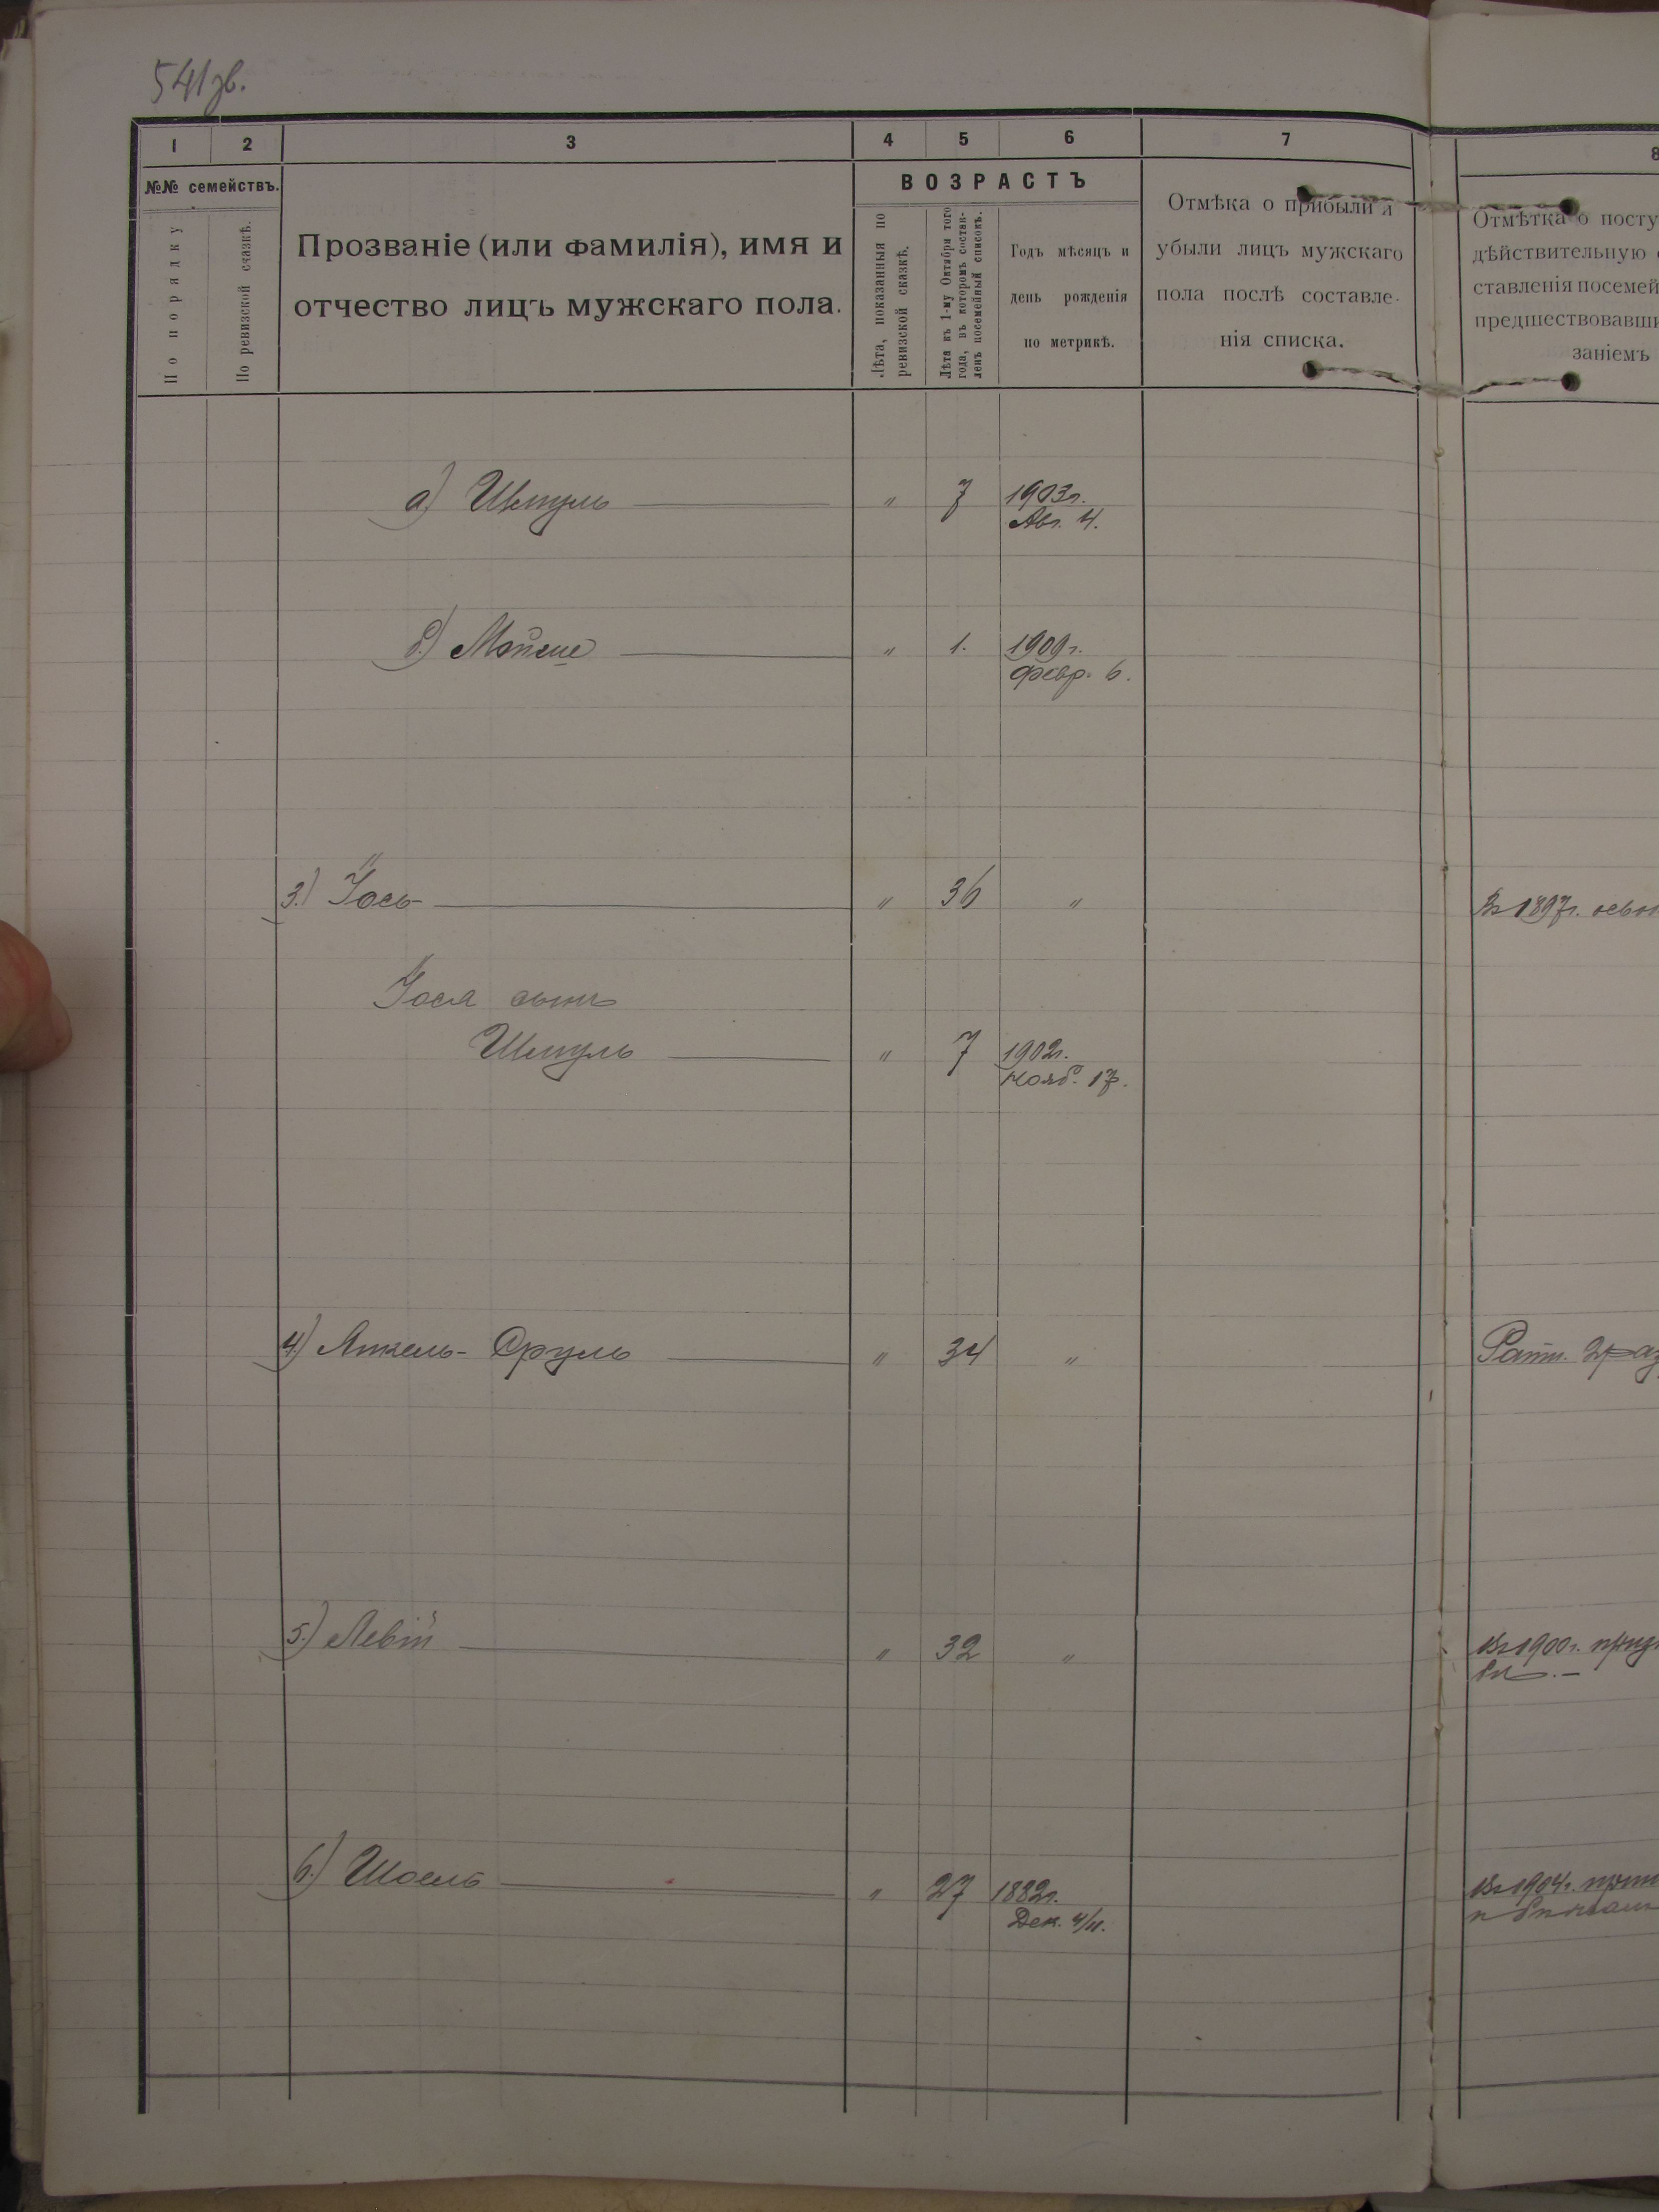 541 зв.
1 2 3 4 5 6 7 8
№№ семействъ.
По порядку
По ревизской сказкѣ.
Прозваніе (или фамилія), имя и
отчество лицъ мужскаго пола.
ВОЗРАСТЪ
Лѣта, показанныя по
ревизской сказкѣ.
Лѣта къ 1-му Октября того
года, въ которомъ состав-
ленъ посемейный списокъ.
Годъ мѣсяцъ и
день рожденія
по метрикѣ.
Отмѣка о прибыли и
убыли лицъ мужскаго
пола послѣ составле-
нія списка.
Отмѣтка о посту
дѣйствительную
ставленія посемей
предшествовавши
заніемъ
а) Шмуль " 7 1903 г.
Авг. 4.
б) Мойше " 1. 1909 г.
Февр. 6.
3.) Іось " 36 " Въ 1897 г.
Іося сынъ
Шмуль " 7 1902 г.
Нояб. 17.
4.) Янкель-Сруль " 34 " Ратн. 2 раз
5.) Левій " 32 " Въ 1900 г. приз
6.) Шоель " 27 1882 г. Въ 1904 г.
Дек. 4/11.